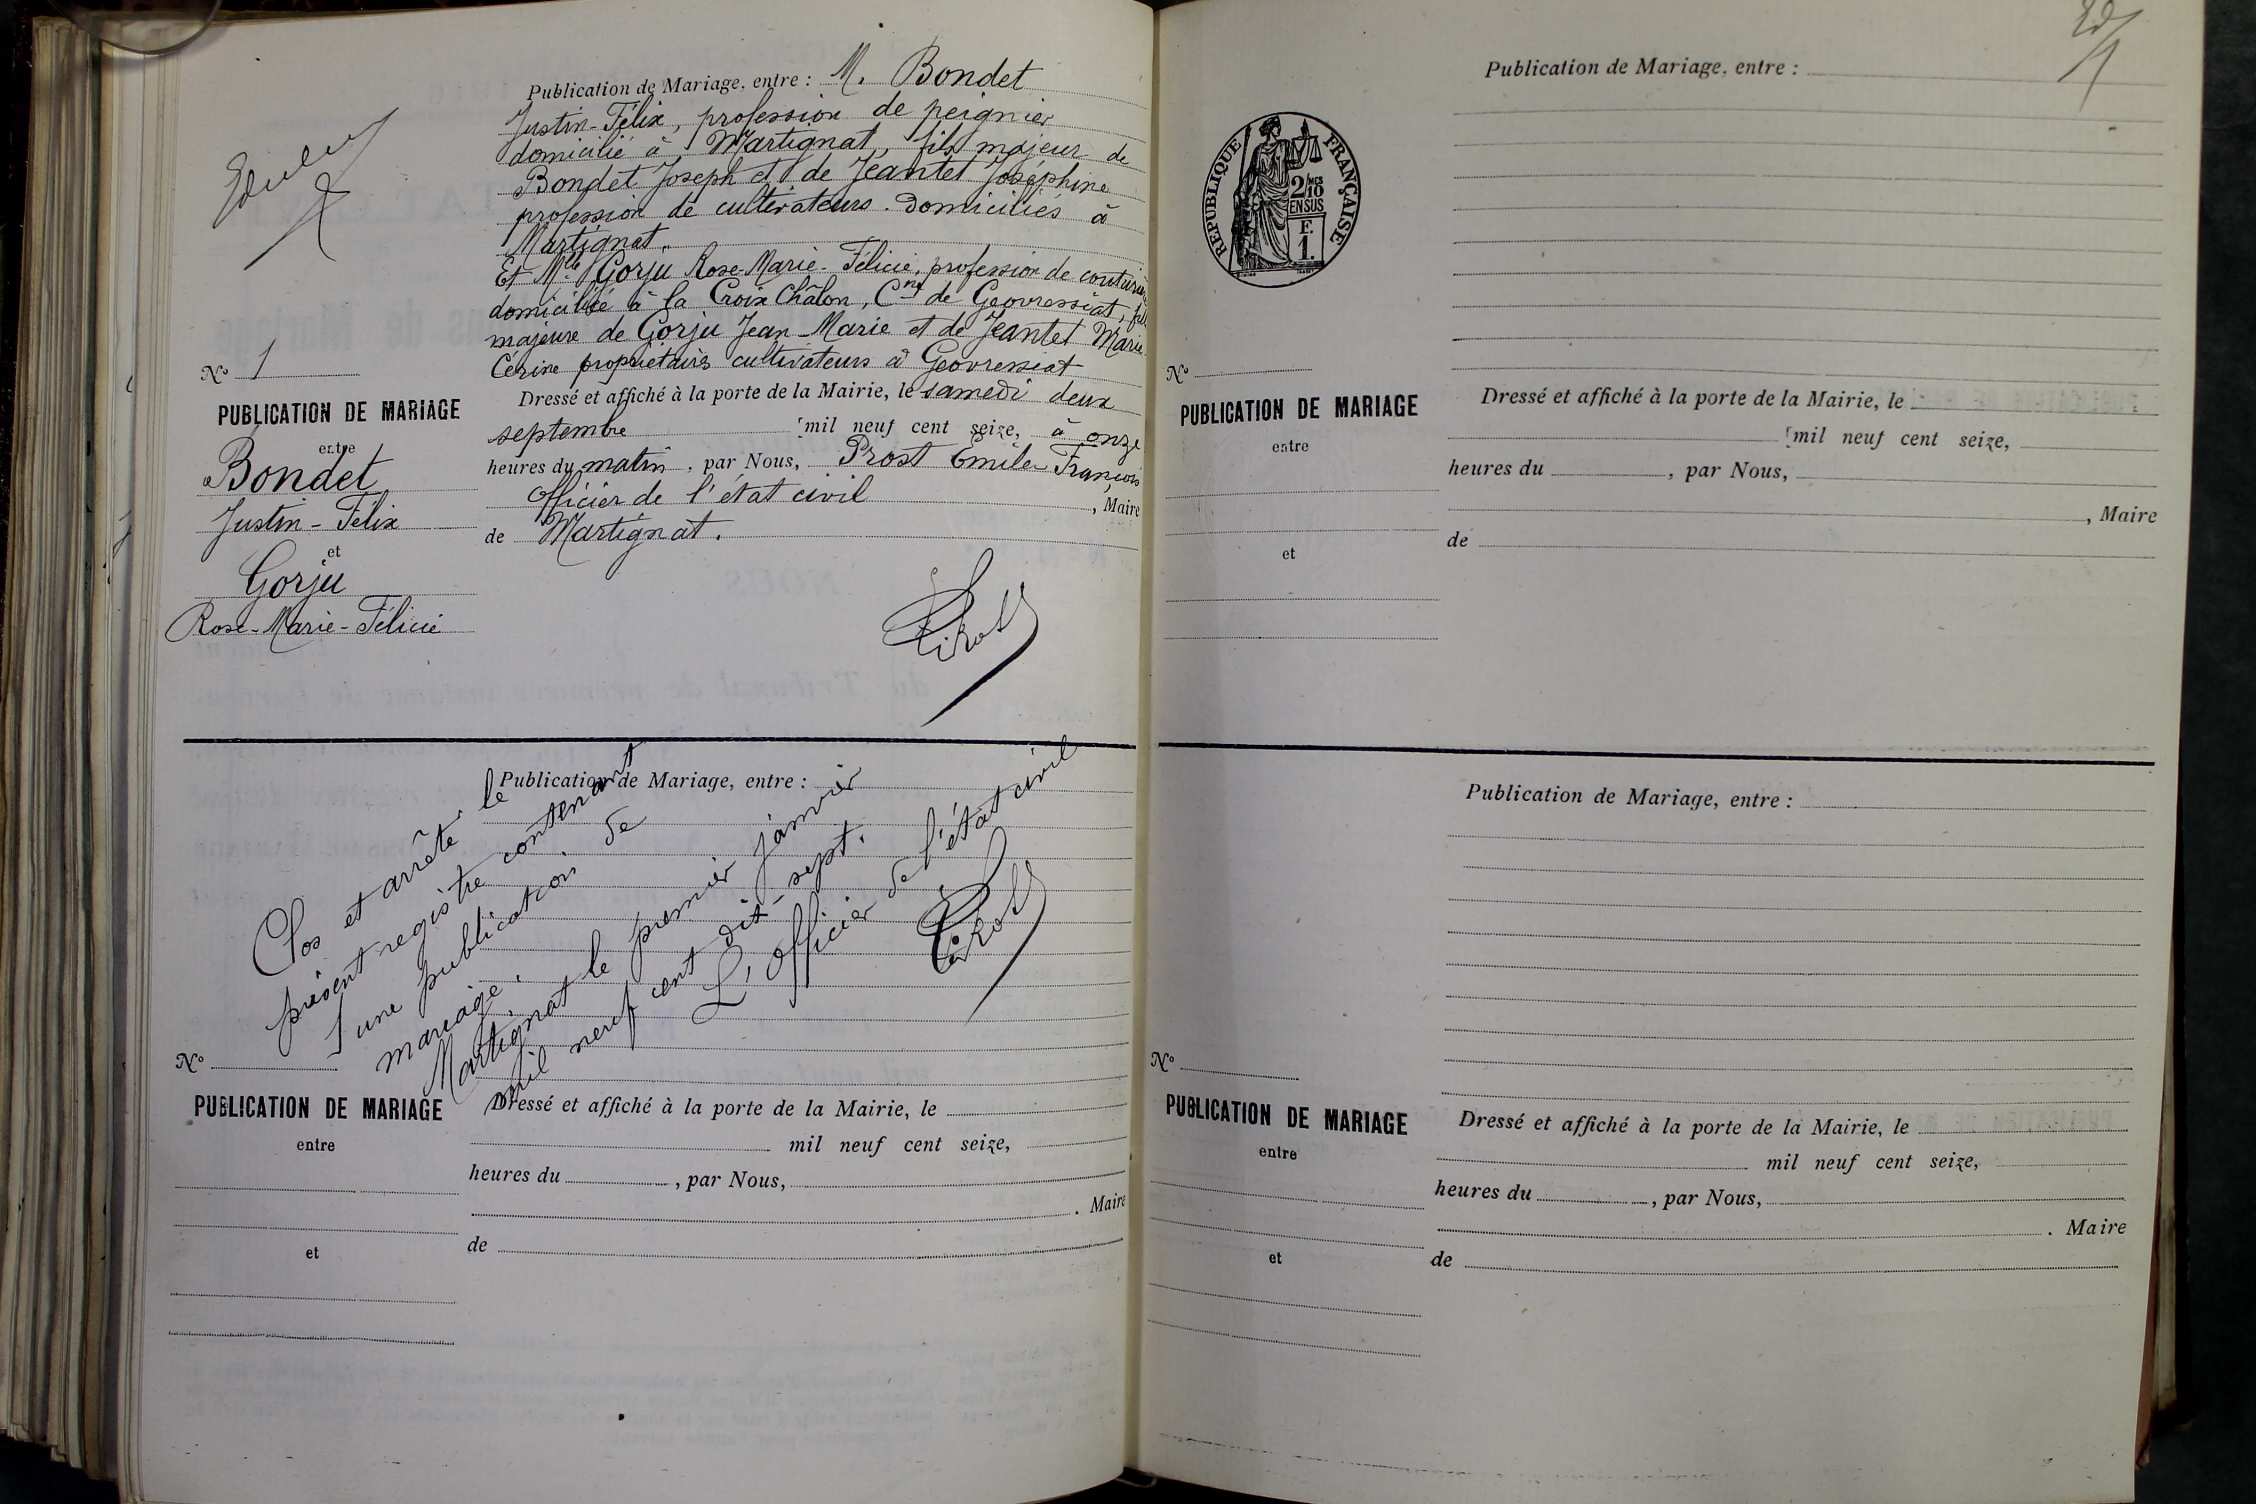 Publication de Mariage, entre : M. Bondet
Justin-Félix, profession de peignier
domicilié à Martignat, fils majeur de
Bondet Joseph et de Jeantet Joséphine
profession de cultivateurs. domiciliés à
Martignat.
Et Mlle Gorju Rose-Marie-Félicie, profession de
domiciliée à la Croix Châlon, Cne de Geovressiat, fille
majeure de Gorju Jean Marie et de Jeantet Marie
Cérine propriétaires cultivateurs à Geovressiat
Dressé et affiché à la porte de la Mairie, le samedi deux
septembre mil neuf cent seize, à onze
heures du matin, par Nous, Prost Emile François
Officier de l'état civil, Maire
de Martignat.
No 1
PUBLICATION DE MARIAGE
entre
Bondet
Justin-Félix
et
Gorju
Rose-Marie-Félicie
Publication de Mariage, entre :
Clos et arrêté le
présent registre contenant
1 une publication de
mariage.
Martignat le premier janvier
mil neuf cent dix-sept.
L'officier de l'état civil
No
PUBLICATION DE MARIAGE
entre
et
Dressé et affiché à la porte de la Mairie, le
mil neuf cent seize,
heures du , par Nous,
. Maire
de
Publication de Mariage, entre :
RÉPUBLIQUE FRANÇAISE
2/10
EN SUS
F.
1.
No
PUBLICATION DE MARIAGE
entre
et
Dressé et affiché à la porte de la Mairie, le
mil neuf cent seize,
heures du , par Nous,
, Maire
de
Publication de Mariage, entre :
No
PUBLICATION DE MARIAGE
entre
et
Dressé et affiché à la porte de la Mairie, le
mil neuf cent seize,
heures du , par Nous,
. Maire
de